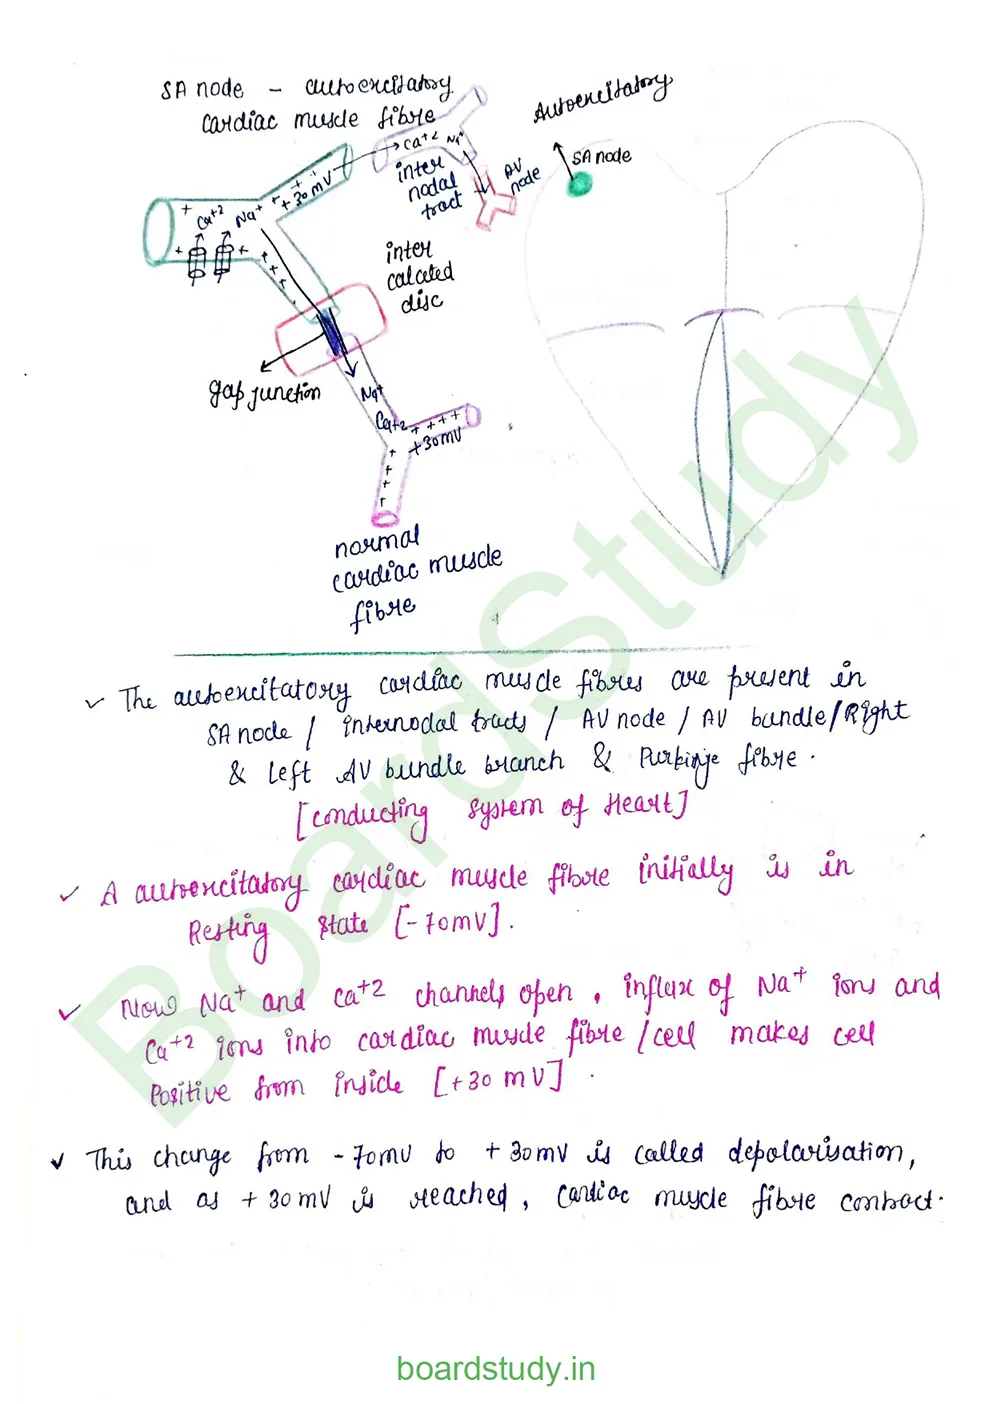 SA node - autoexcitatory
cardiac muscle fibre
Ca+2 Na+
inter
nodal
tract
AV
node
Autoexcitatory
SA node
+ Ca+2 Na+ + + + + +30mV
+ +
+ + +
inter
calated
disc
gap junction
Na+
Ca+2 + + + +
+30mV
+ + + +
normal
cardiac muscle
fibre
✓ The autoexcitatory cardiac muscle fibres are present in
SA node / internodal tracts / AV node / AV bundle/Right
& left AV bundle branch & Purkinje fibre.
[conducting system of Heart]
✓ A autoexcitatory cardiac muscle fibre initially is in
Resting state [-70mV].
✓ Now Na+ and Ca+2 channels open, influx of Na+ ions and
Ca+2 ions into cardiac muscle fibre/cell makes cell
Positive from inside [+30 mV].
✓ This change from -70mV to +30mV is called depolarisation,
and as +30mV is reached, cardiac muscle fibre contract.
BoardStudy
boardstudy.in